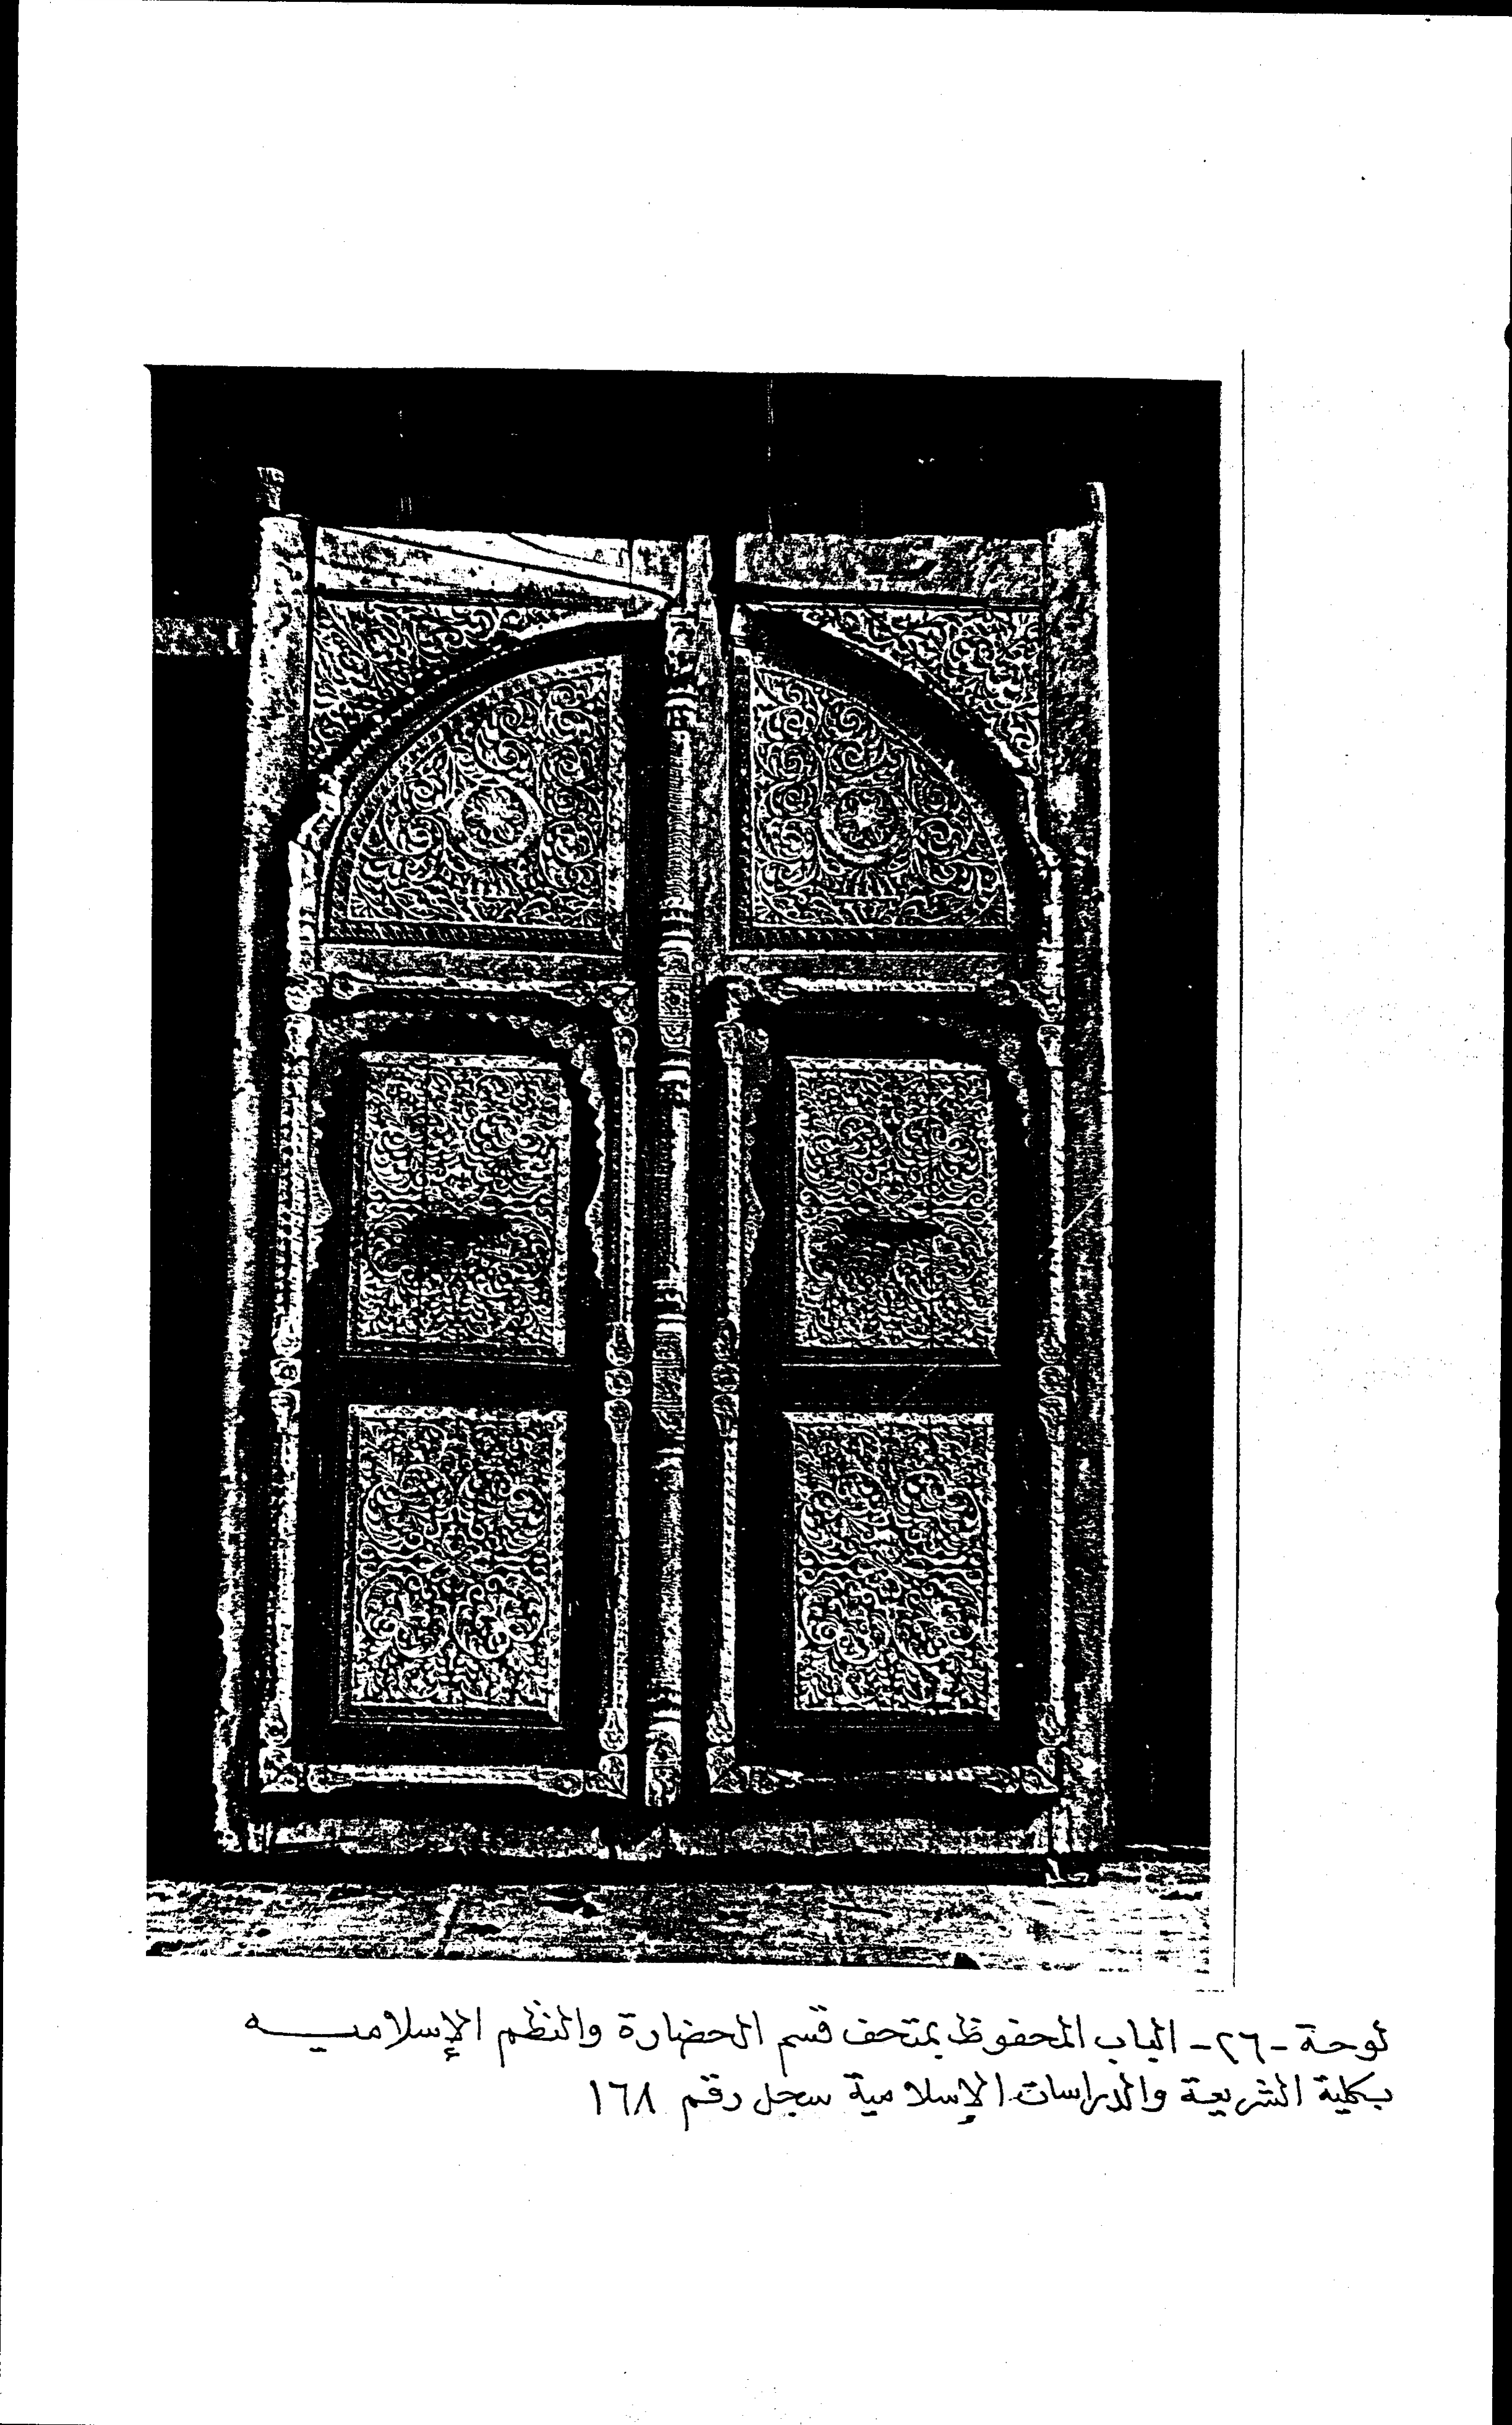 لوحة -٢٦- الباب المحفوظ بمتحف قسم الحضارة والنظم الإسلاميه
بكلية الشريعة والدراسات الإسلامية سجل رقم ١٦٨